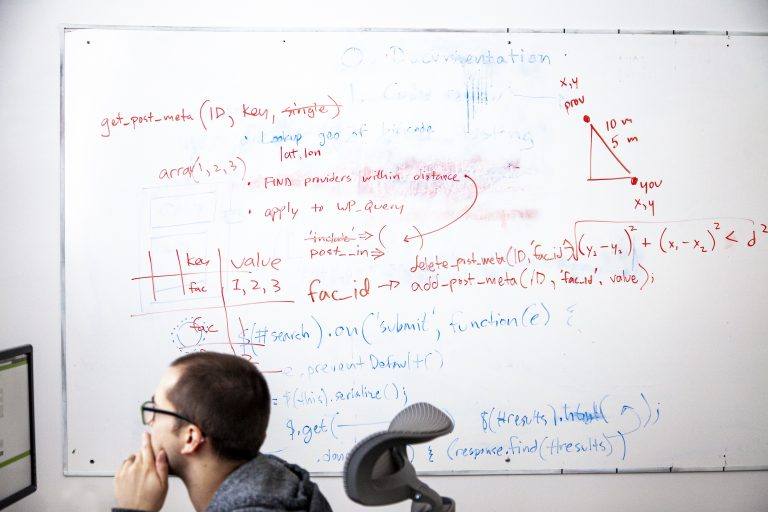 Documentation
1. Code
get_post_meta (ID, key, single)
• Lookup geo of
lat, lon
array(1, 2, 3)
• FIND providers within distance
• apply to WP_Query
'include' => ( )
post__in =>
x,y
prov
10 m
5 m
you
x,y
delete_post_meta(ID, 'fac_id')
√(y₂-y₂)² + (x₁-x₂)² < d²
key value
fac 1, 2, 3
fac_id → add_post_meta(ID, 'fac_id', value);
fac
$(#search).on('submit', function(e) {
e.preventDefault()
= $(this).serialize();
$.get(
$(#results).html( );
.done { (response.find(#results))